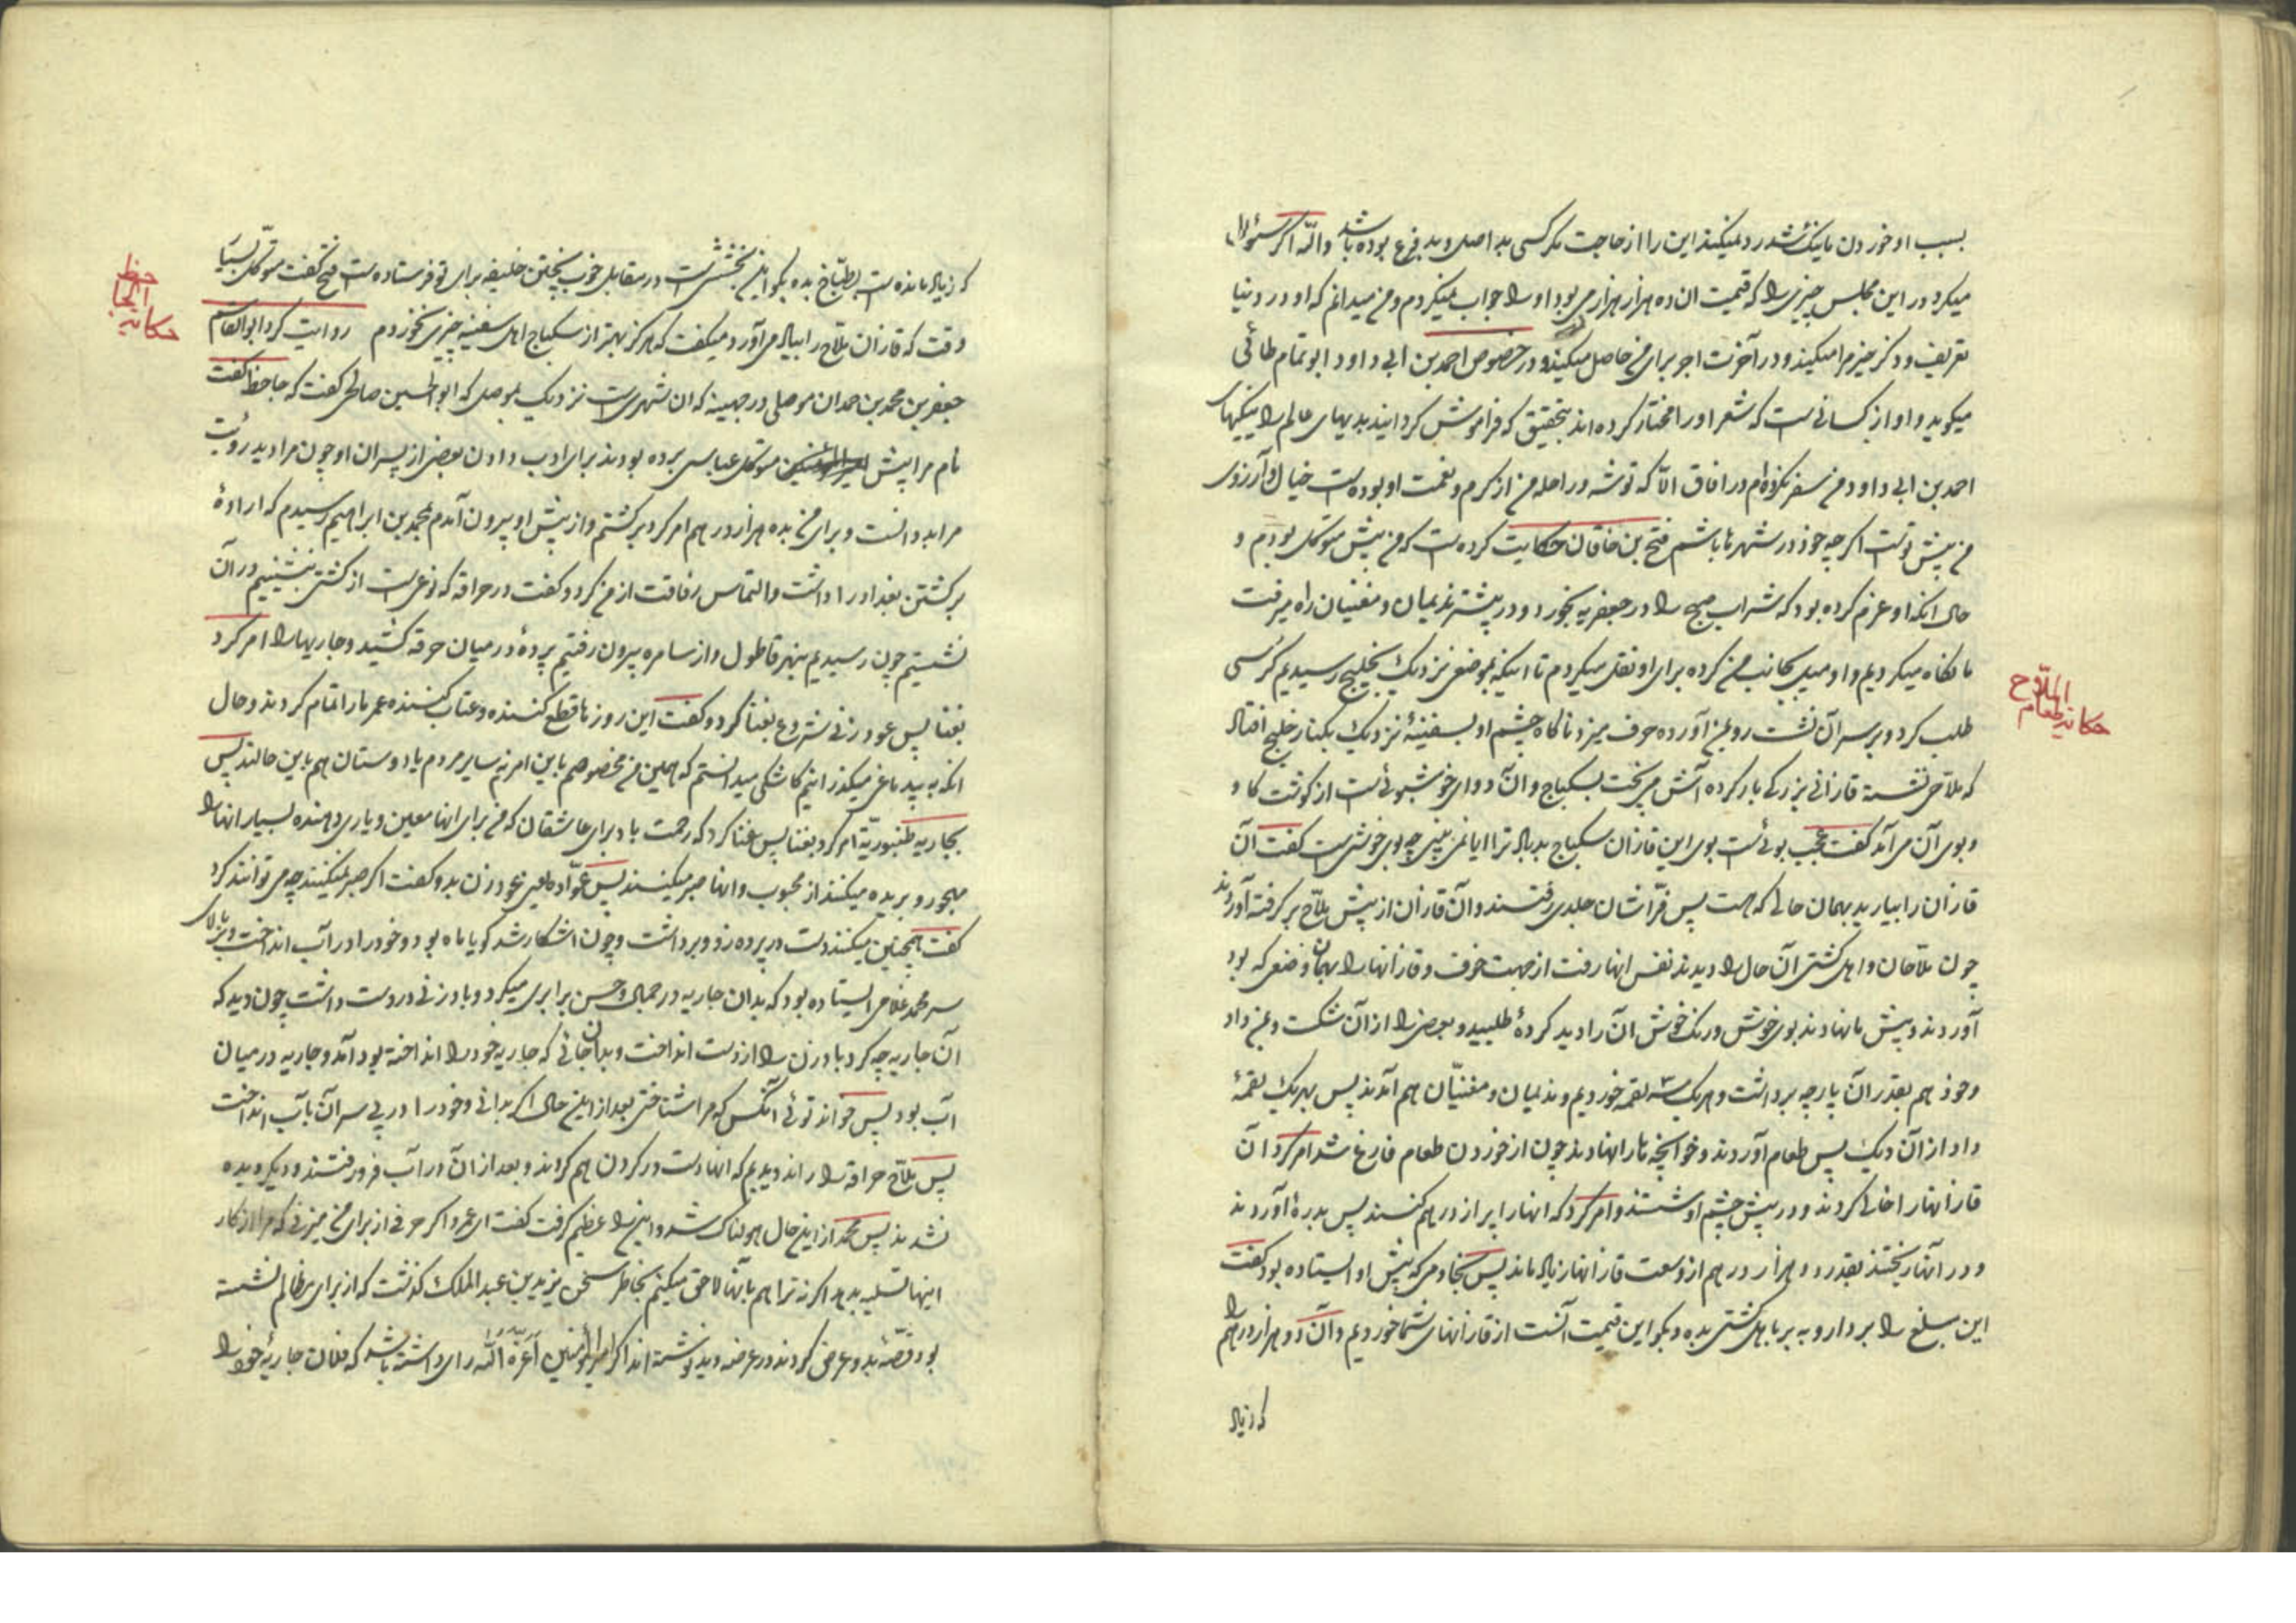 بسبب او خوردن با یک شد رد نمیکند این را از حاجت مکر کسی بد اصل و بد فرع بوده باشد والله اکر سئوال
میکرد در این مجلس چیزی را که قیمت ان ده هزار هزار می بود او را جواب میکردم و من میدانم که او در دنیا
تعریف و ذکر خیز مرا میکند و در آخرت اجر برای من حاصل میکند و در خصوص احمد بن ابی داود ابو تمام طائی
میکوید و او از کسانی است که شعر او را مختار کرده اند بتحقیق که فراموش کردانیند بدیهای عالم را نیکیهای
احمد بن ابی داود من سفر نکرده ام در افاق الّا که توشه و راحله من از کرم و نعمت او بوده است خیال و آرزوی
من پیش توست اکر چه خود در شهرها باشم فتح بن خاقان حکایت کرده است که من پیش متوکل بودم و
حال انکه او عزم کرده بود که شراب صبح را در جعفریه بخورد و در پیشتر ندیمان و مغنیان راه میرفت
ما نکاه میکردیم و او میل بجانب من کرده برای او نقل میکردم تا اینکه بموضعی نزدیک بخلیج رسیدیم کرسی
طلب کرد و بر سر آن نشست رو بمن آورده حرف میزد ناکاه چشم او بسفینهٔ نزدیک بکنار خلیج افتاد
که ملاحی نشسته قازانی بزرکی بار کرده آتش می پخت بسکباج و ان دوای خوشبوئی است از کوشت کاو
و بوی آن می آمد کفت عجب بوئیست بوی این قازان سکباج بد باد ترا ایا نمی بینی چه بوی خوشی است کفت آن
قازان را بیارید بهمان حالی که هست پس فرّاشان جلدی رفتند و آن قازان از پیش ملاح بر کرفته آوردند
چون ملاحان و اهل کشتی آن حال را دیدند نفس انها رفت از جهت خوف و قازانها را بهمان وضعی که بود
آوردند و پیش ما نهادند بوی خوش و رنک خوش ان را دید کردهٔ طلبید و بعضی را از آن شکست و بمن داد
و خود هم بقدر ان پارچه برداشت و هر یک سه لقمه خوردیم و ندیمان و مغنیّان هم آمدند پس بهر یک لقمهٔ
داد از آن دیک پس طعام آوردند و خوانچه ها را نهادند چون از خوردن طعام فارغ شد امر کرد ان
قازانها را خالی کردند و در پیش چشم او شستند و امر کرد که انها را پر از درهم کنند پس بدرهٔ آوردند
و در انها ریختند بقدر دو هزار درهم از وسعت قازانها زیاد ماند پس بخادمی که پیش او ایستاده بود کفت
این مبلغ را بردار و به بر باهل کشتی بده و بکو این قیمت آنست از قازانهای شما خوردیم و آن دو هزار درهم را
که زیاد
حکایة طعام الملّاح
که زیاد مانده است بطبّاخ بده بکو این بخششی است در مقابل خوب پختن خلیفه برای تو فرستاده است فتح کفت متوکل بسیار
وقت که قازان ملّاح را بیاد می آورد میکفت که هرکز بهتر از سکباج اهل سفینه چیزی نخوردم روایت کرد ابو القاسم
جعفر بن محمد بن حمدان موصلی در جهینه که ان شهری است نزدیک بموصل که ابو الحسین صالحی کفت که جاحظ کفت
نام مرا پیش متوکل عباسی برده بودند برای ادب دادن بعضی از پسران او چون مرا دید رؤیت
مرا بد دانست و برای من بده هزار درهم امر کرد بر کشتم و از پیش او بیرون آمدم بمحمد بن ابراهیم رسیدم که ارادهٔ
بر کشتن بغداد را داشت و التماس رفاقت از من کرد و کفت در حراقه که نوعی است از کشتی بنشینیم در آن
نشستیم چون رسیدیم بنهر قاطول و از سامره بیرون رفتیم پردهٔ در میان حرقه کشید و جاریها را امر کرد
بغنا پس عود زنی شروع بغنا کرد و کفت این روزها قطع کننده و عتاب کننده عمر ما را تمام کردند و حال
انکه به بیدماغی میکذرانیم کاشکی میدانستم که همین من مخصوصم باین امر نه سایر مردم یا دوستان هم باین حالند پس
بجاریه طنبوریّه امر کرد بغنا پس غنا کرد که رحمت باد برای عاشقان که من برای انها معین و یاری دهنده بسیار انها را
مهجور و بریده میکنند از محبوب و انها صبر میکنند پس عوّاده یعنی عود زن بدو کفت اکر صبر نمیکنند چه می توانند کرد
کفت همچنین میکنند دست در پرده زد و برداشت و چون اشکار شد کویا ماه بود و خود را در آب انداخت و بالای
سر محمد غلامی ایستاده بود که بدان جاریه در جمال و حسن برابری میکرد و بادزنی در دست داشت چون دید که
آن جاریه چه کرد بادزن را از دست انداخت و بدان جائی که جاریه خود را انداخته بود آمد و جاریه در میان
آب بود پس خواند توئی آنکس که مرا شناختی بعد از این حال اکر بدانی و خود را در پی سر آن بآب انداخت
پس ملاح حراقه را راند دیدیم که انها دست در کردن هم کردند و بعد از ان در آب فرو رفتند و دیکر دیده
نشدند پس محمد از این حال هولناک شد و این را عظیم کرفت کفت ای عمرو اکر حرفی از برای من میزنی که مرا از کار
اینها تسلیه بدهد اکر نه ترا هم بآنها لاحق میکنم بخاطر سخن یزید بن عبد الملک کذشت که از برای مظالم نشسته
بود قصّهٔ بدو عرض کردند در عرضه دید نوشته اند اکر امیر المؤمنین اَعَزَّهُ اللّٰه رای داشته باشد که فلان جاریهٔ خود را
حکایة الجاحظ